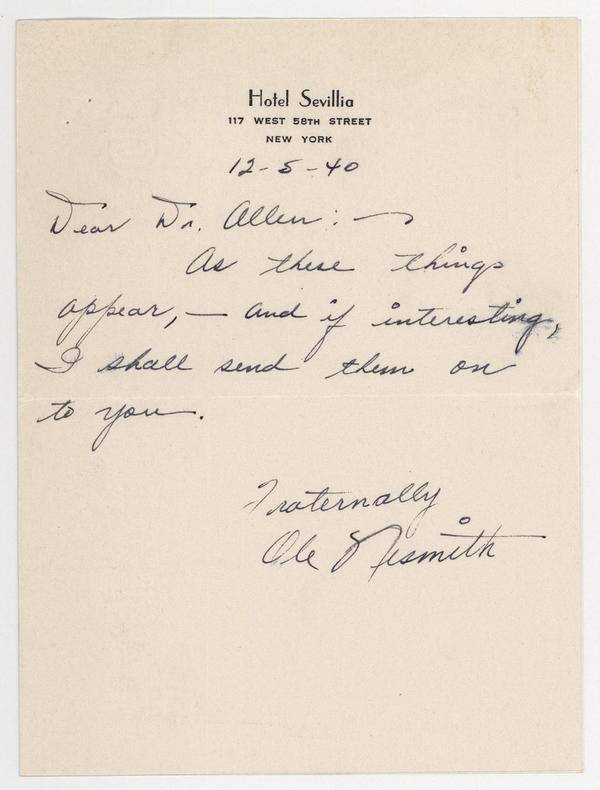 Hotel Sevillia
117 WEST 58TH STREET
NEW YORK
12-5-40
Dear Dr. Allen: —
As these things
appear, — and if interesting,
I shall send them on
to you.
Fraternally
Ole Nesmith